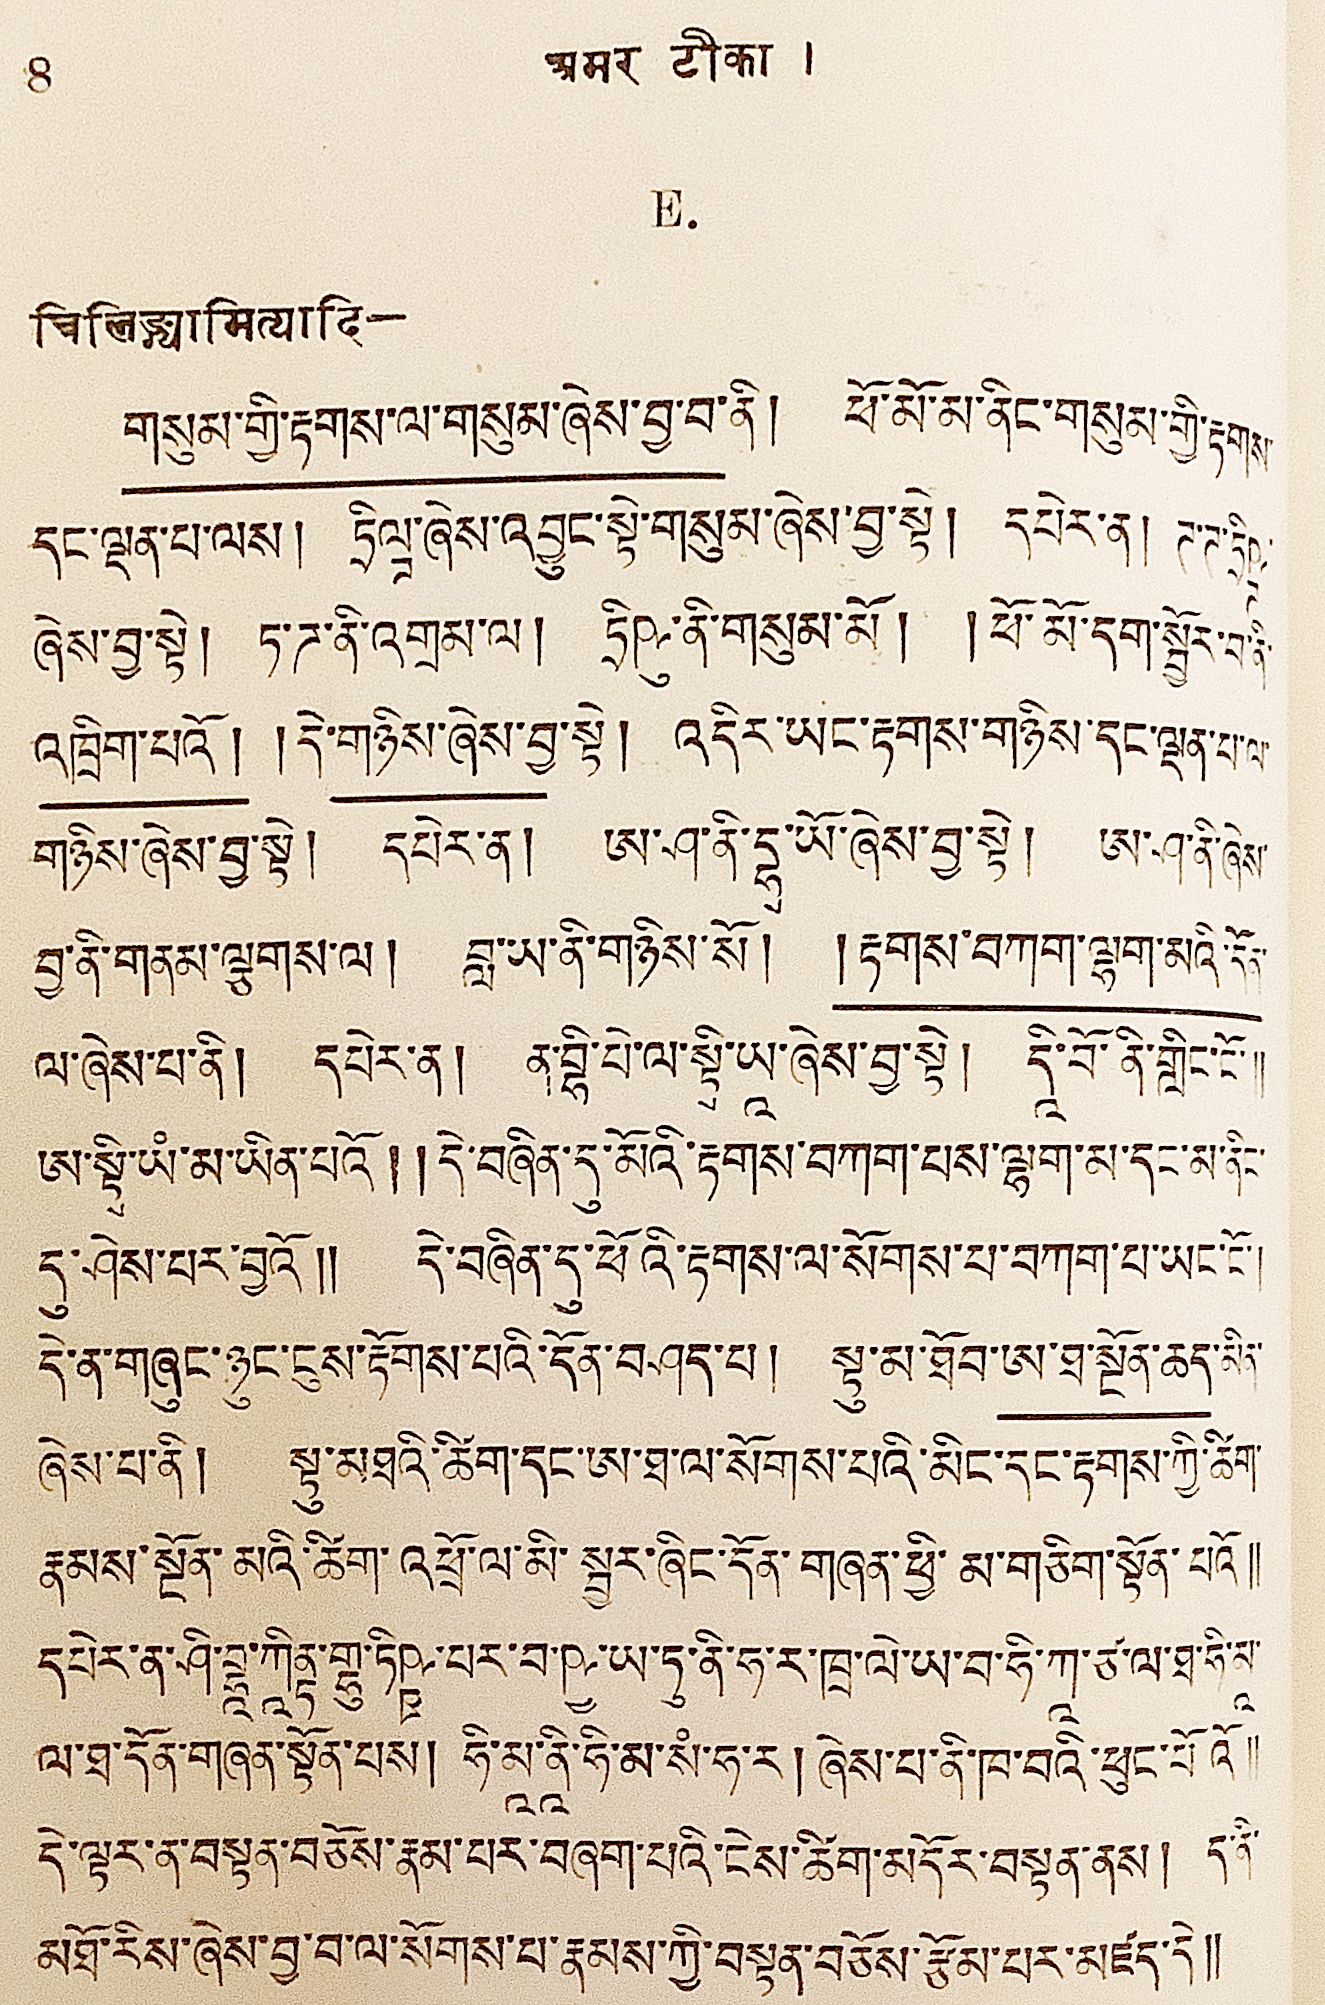 8
अमर टीका ।
E.
त्रिलिङ्ग्यामित्यादि—
གསུམ་གྱི་རྟགས་ལ་གསུམ་ཞེས་བྱ་བ་ནི། ཕོ་མོ་མ་ནིང་གསུམ་གྱི་རྟགས་
དང་ལྡན་པ་ལས། ཏྲིལྵུ་ཞེས་འབྱུང་སྟེ་གསུམ་ཞེས་བྱ་སྟེ། དཔེར་ན། ཊ་ཊ་ཏྲིཥུ་
ཞེས་བྱ་སྟེ། ཏ་ཊ་ནི་འགྲམ་ལ། ཏྲིཥུ་ནི་གསུམ་མོ། །ཕོ་མོ་དག་སྦྱོར་བ་ནི་
འཁྲིག་པའོ། །དེ་གཉིས་ཞེས་བྱ་སྟེ། འདིར་ཡང་རྟགས་གཉིས་དང་ལྡན་པ་ལ་
གཉིས་ཞེས་བྱ་སྟེ། དཔེར་ན། ཨ་ཤ་ནི་དྭ་ཡོ་ཞེས་བྱ་སྟེ། ཨ་ཤ་ནི་ཞེས་
བྱ་ནི་གནམ་ལྕགས་ལ། དྭ་ཡ་ནི་གཉིས་སོ། །རྟགས་བཀག་ལྷག་མའི་དོན་
ལ་ཞེས་པ་ནི། དཔེར་ན། ན་དྭི་པེ་ལ་སྟྲི་ཡཱ་ཞེས་བྱ་སྟེ། དྭི་བོ་ནི་གླིང་ངོ་॥
ཨ་སྟྲི་ཡཾ་མ་ཡིན་པའོ། །དེ་བཞིན་དུ་མོའི་རྟགས་བཀག་པས་ལྷག་མ་དང་མ་ནིང་
དུ་ཤེས་པར་བྱའོ།། དེ་བཞིན་དུ་ཕོའི་རྟགས་ལ་སོགས་པ་བཀག་པ་ཡང་ངོ་།
དེ་ན་གཞུང་ཉུང་ངུས་རྟོགས་པའི་དོན་བཤད་པ། སྟུ་མ་ཐོབ་ཨ་ཐ་སྔོན་ཆད་མིན་
ཞེས་པ་ནི། སྟུ་མཐའི་ཚིག་དང་ཨ་ཐ་ལ་སོགས་པའི་མིང་དང་རྟགས་ཀྱི་ཚིག་
རྣམས་སྔོན་མའི་ཚིག་འཕྲོ་ལ་མི་སྦྱར་ཞིང་དོན་གཞན་ཕྱི་མ་གཅིག་སྟོན་པའོ།།
དཔེར་ན་ཤི་
ལ་ཐ་དོན་གཞན་སྟོན་པས། ཧི་མཱ་ནཱི་ཧི་མ་སཾ་ཧ་ར། ཞེས་པ་ནི་ཁ་བའི་ཕུང་པོའོ།།
དེ་ལྟར་ན་བསྟན་བཅོས་རྣམ་པར་བཞག་པའི་ངེས་ཚིག་མདོར་བསྟན་ནས། ད་ནི་
མཐོ་རིས་ཞེས་བྱ་བ་ལ་སོགས་པ་རྣམས་ཀྱི་བསྟན་བཅོས་རྩོམ་པར་མཛད་དེ།།